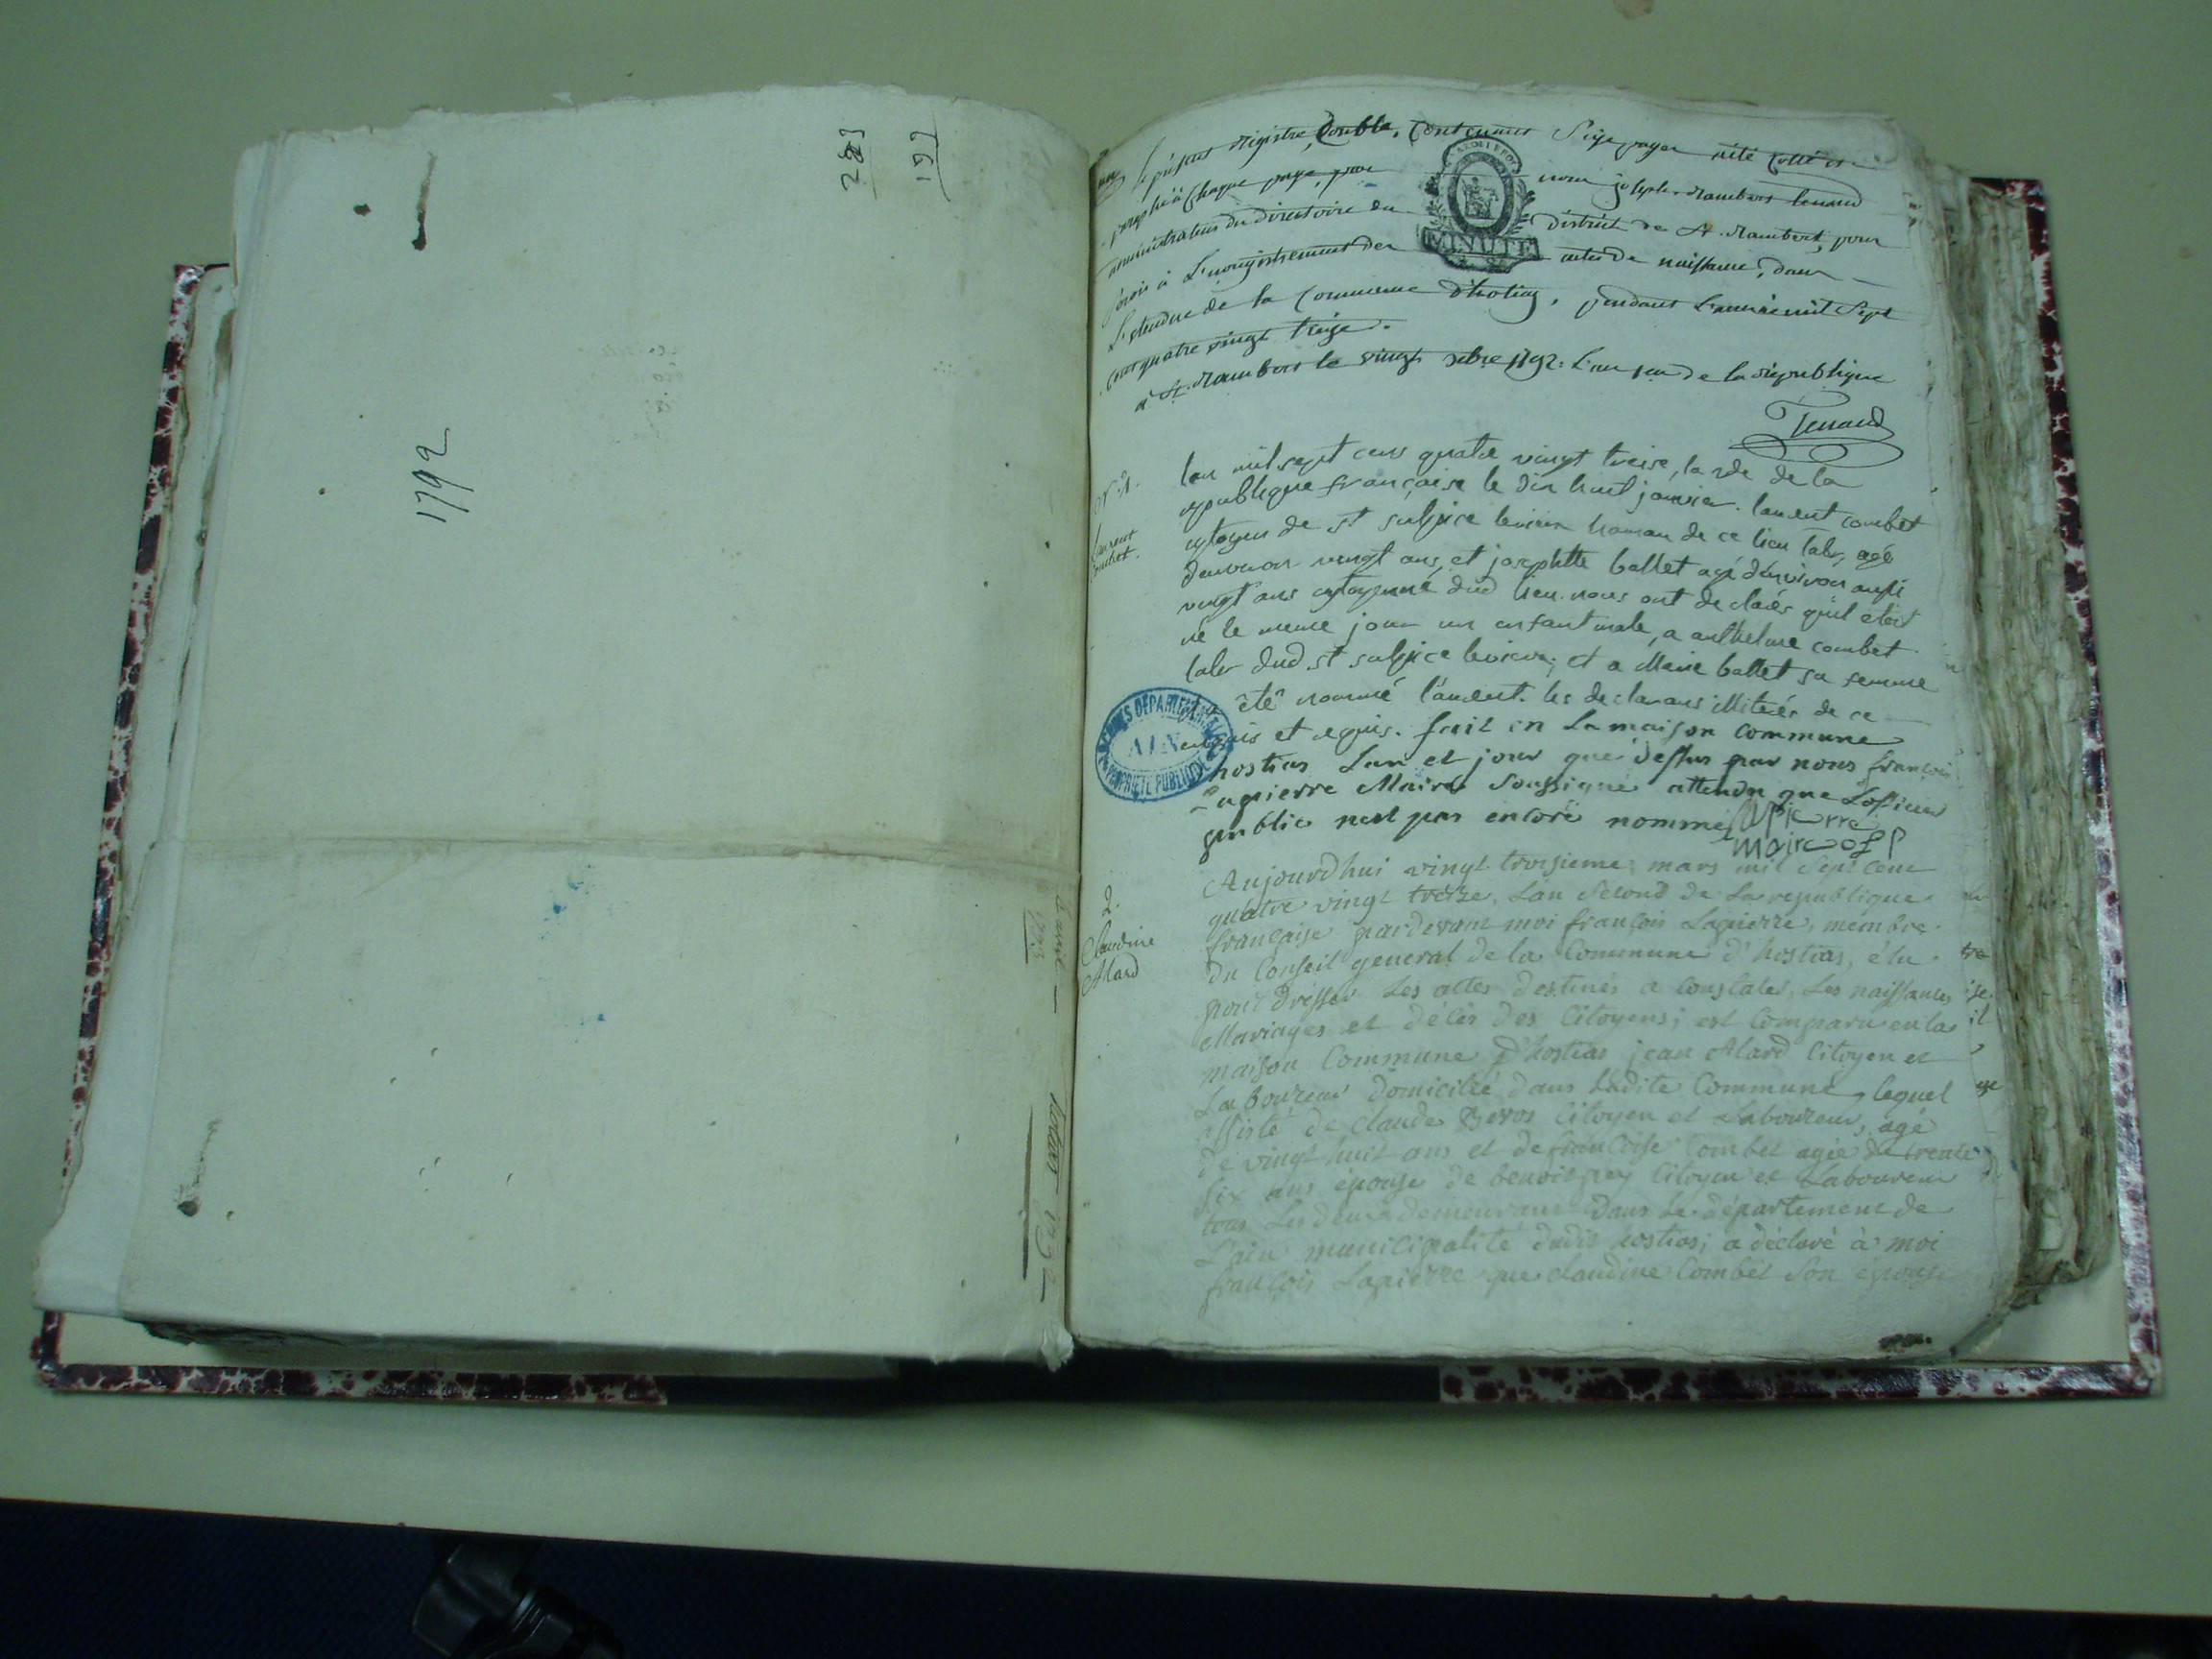 283
197
1792
hostias 1792
Le présent registre double, contenant Seize pages a été cotté et
paraphé à chaque page, par nous joseph-Rambert tenand
administrateur du directoire du district de St. Rambert, pour
servir à L'enregistrement des actes de naissance, dans
L'étendue de la commune d'hostias, pendant L'année mil Sept
cent quatre vingt treize.
à St. Rambert le vingt xbre 1792. L'an 1er de la république
Tenand
MINUTE
N° 1.
laurent
Combet.
lan mil sept cens quatre vingt treise, la 2de de la
republique françaisse le dix huit janvier. laurent combet
cytoyen de st sulpice levieux hamau de ce lieu labr, agé
denviron vingt ans, et josephtte ballet agé denviron aussi
vingt ans cytoyenne dud lieu. nous ont declarés quil etoit
né le meme jour un enfant male, a anthelme combet
labr dud st sulpice levieux; et a Marie ballet sa femme
été nommé laurent. les declarans illiterés de ce
enquis et requis. fait en La maison commune
hostias Lan et jour que dessus par nous françois
Lapierre Maire soussigné attendu que Lofficier
public nest pas encore nommé Lapierre
maire of p
ARCHIVES DÉPARTEMENTALES
AIN
PROPRIÉTÉ PUBLIQUE
2.
Claudine
Alard
Aujourd'hui vingt troisieme mars mil Sept cent
quatre vingt treize, L'an Second de La republique
française pardevant moi françois Lapierre, membre
du Conseil general de la Commune d'hostias, élu
pour dresser Les actes destinés a constater Les naissances
Mariages et décès des Citoyens; est Comparu en la
maison Commune d'hostias jean Alard Citoyen et
Laboureur domicilié dans Ladite Commune, lequel
assisté de Claude Beros Citoyen et Laboureur, agé
de vingt huit ans et de françoise Combet agée de trente
six ans épouse de benoit prey Citoyen et Laboureur
tous Les deux demeurans dans Le département de
L'ain municipalité dudit hostias; a déclaré à moi
françois Lapierre que claudine Combet Son épouse